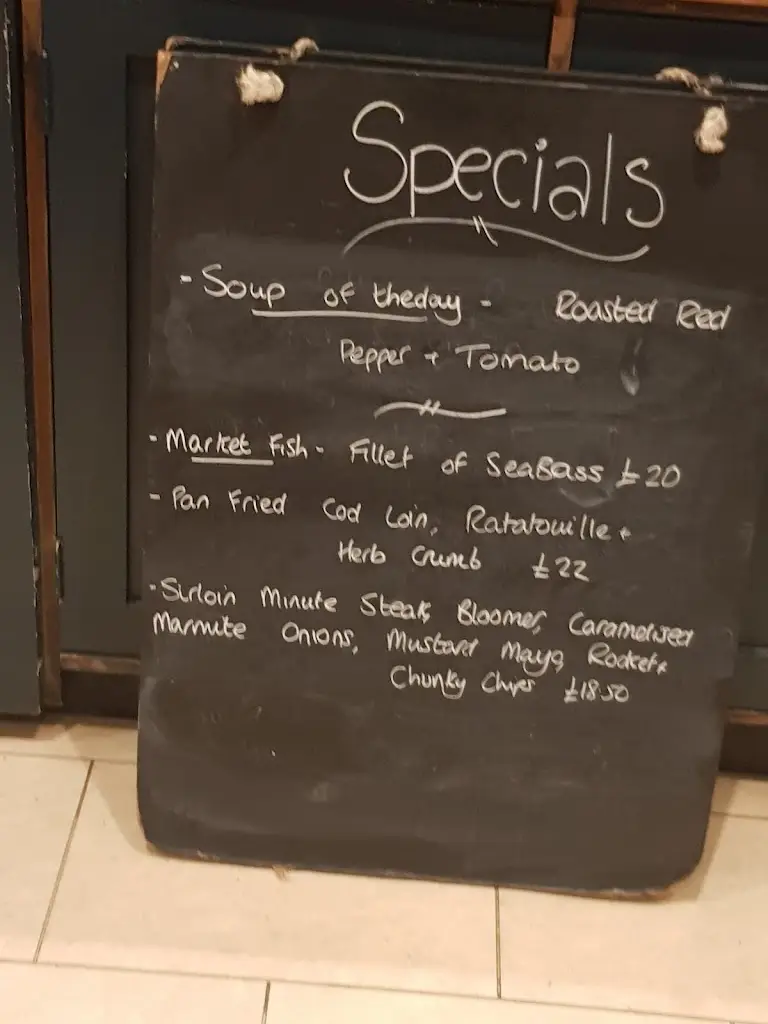 Specials
- Soup of the day - Roasted Red
Pepper + Tomato
- Market Fish - Fillet of SeaBass £20
- Pan Fried Cod Loin, Ratatouille +
Herb Crumb £22
- Sirloin Minute Steak, Bloomer, Caramelised
Marmite Onions, Mustard Mayo, Rocket +
Chunky Chips £18.50